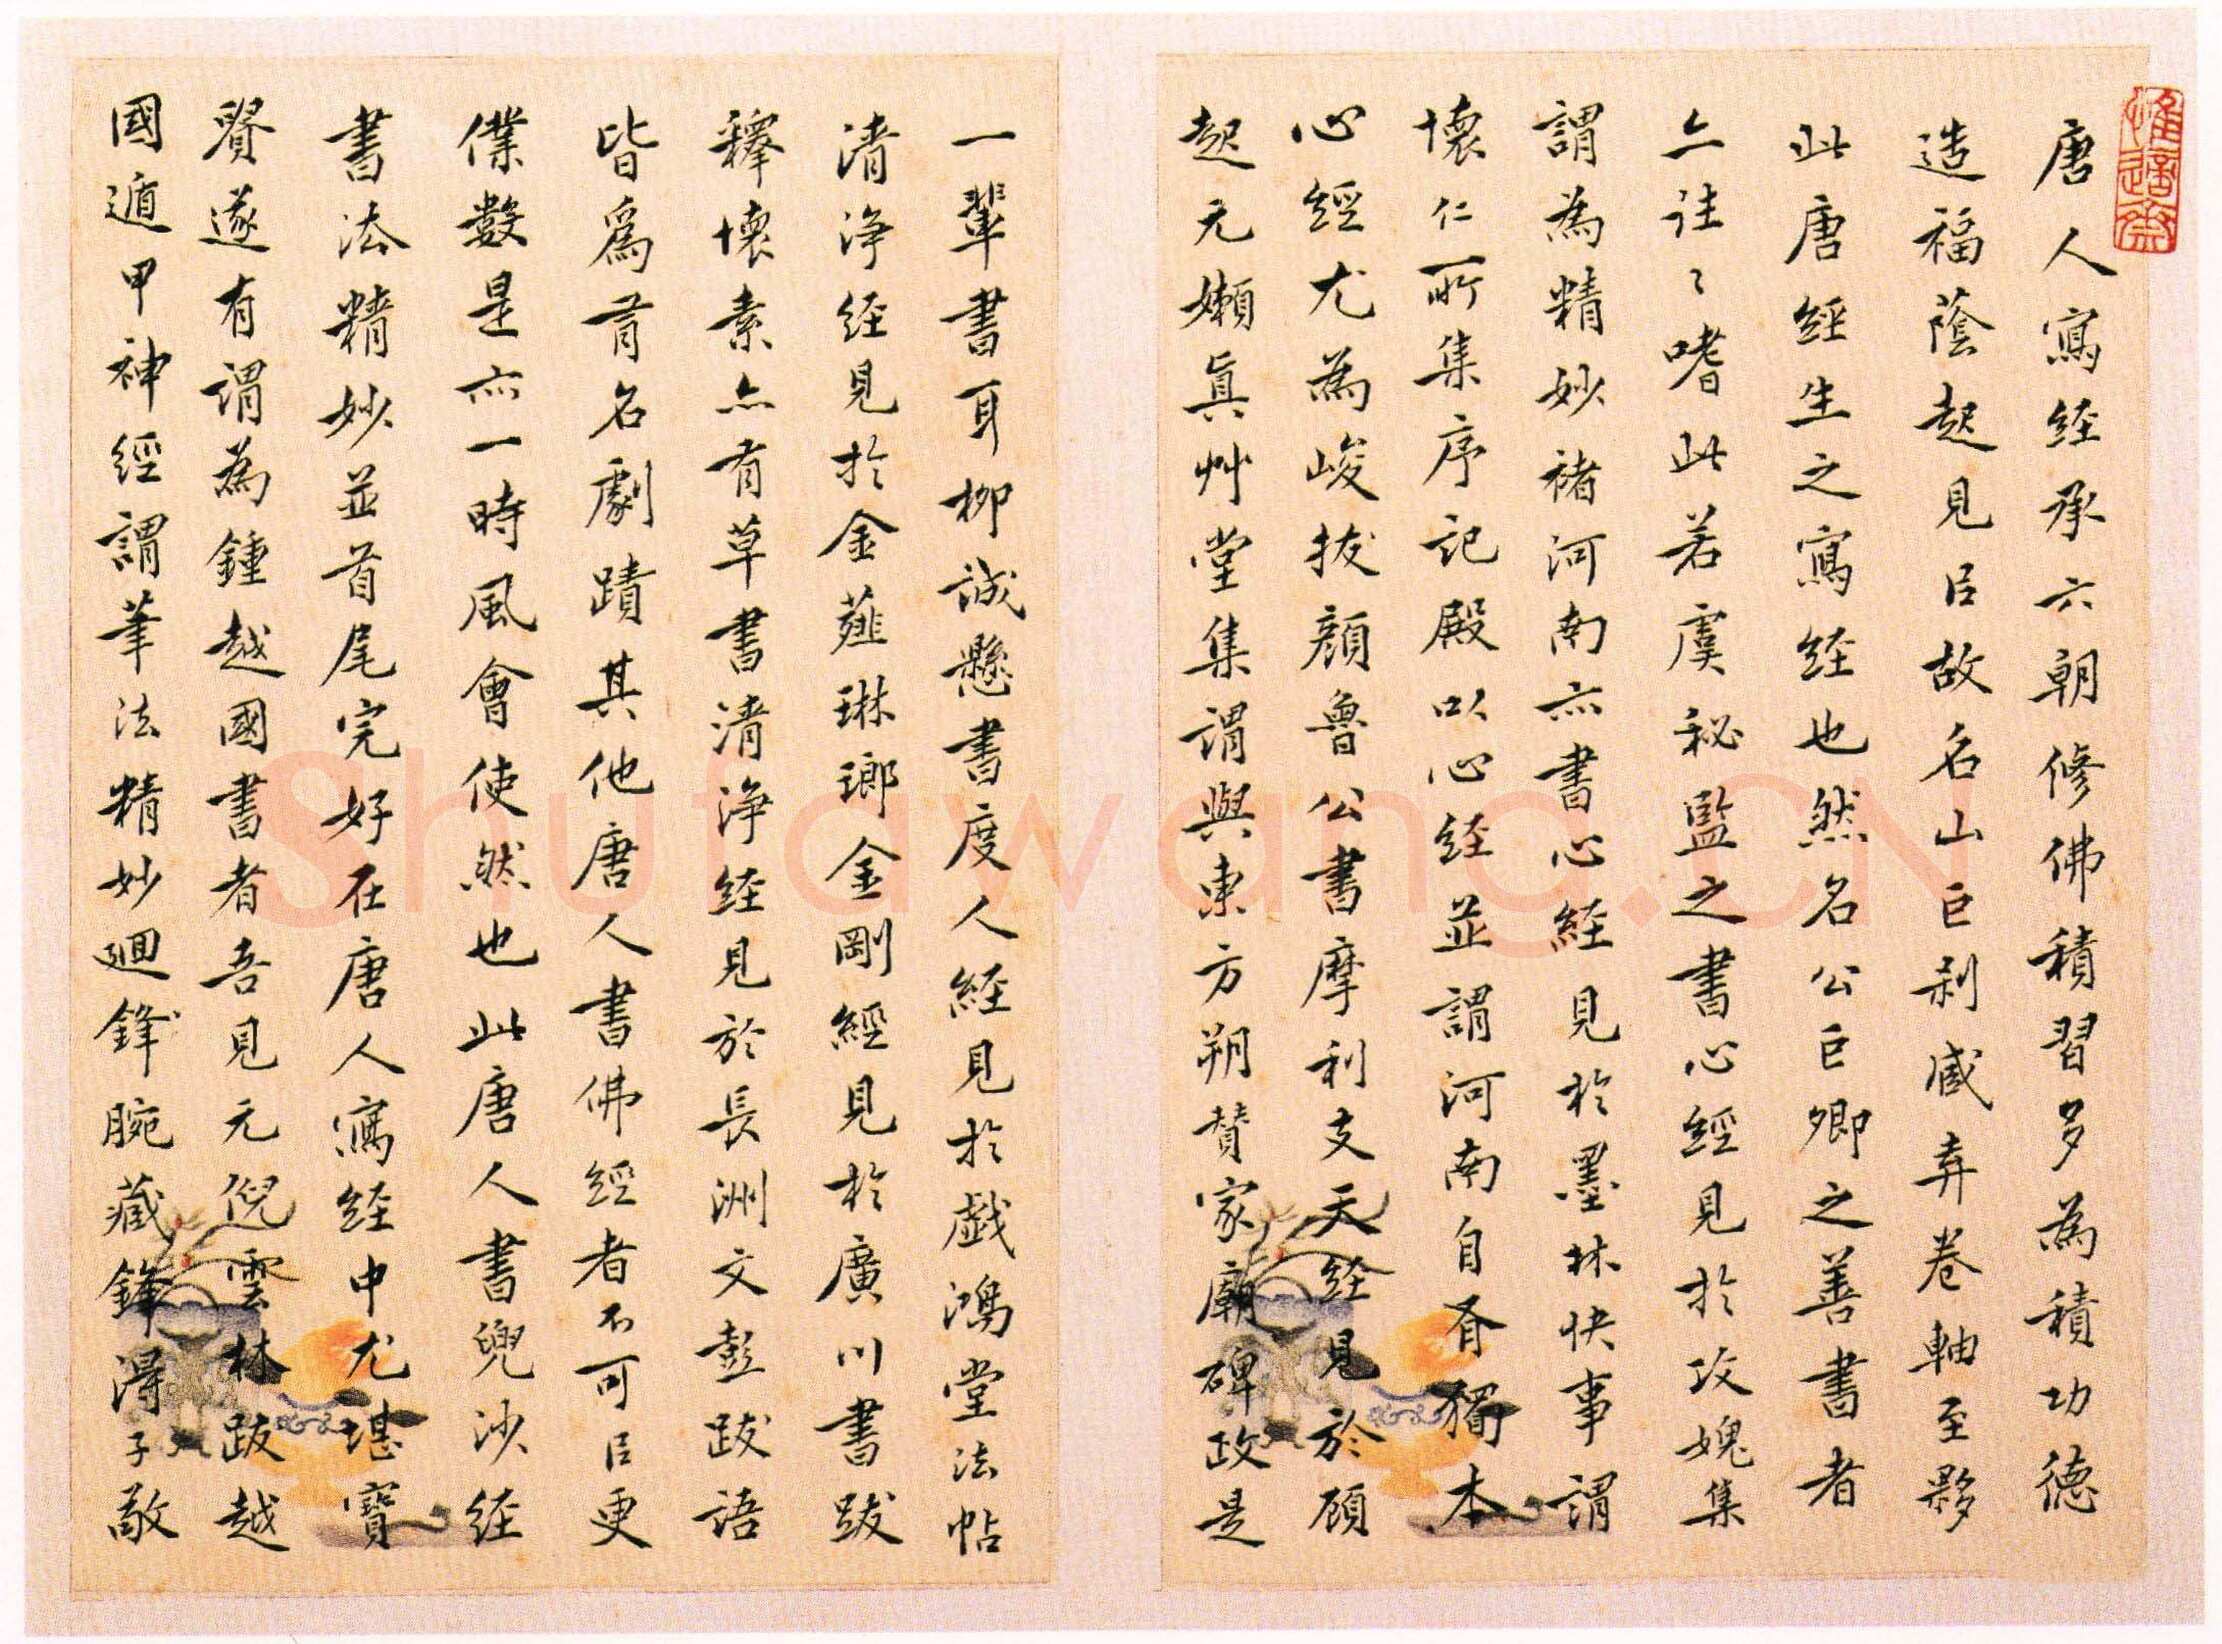 唐人寫経承六朝修佛積習多為積功德
造福蔭起見㠯故名山巨刹臧弆卷軸至夥
此唐經生之寫経也然名公巨卿之善書者
亦往〻嗜此若虞秘監之書心經見於攻媿集
謂為精妙褚河南亦書心經見於墨林快事謂
懷仁所集序記殿以心経並謂河南自有獨本
心經尤為峻拔顔魯公書摩利支天経見於顧
起元嬾真艸堂集謂與東方朔贊家廟碑政是
一輩書耳柳誠懸書度人経見於戯鴻堂法帖
清浄経見於金薤琳瑯金剛經見於廣川書跋
釋懷素亦有草書清浄経見於長洲文彭跋語
皆爲有名劇蹟其他唐人書佛經者不可㠯更
僕數是亦一時風會使然也此唐人書兜沙経
書法精妙並首尾完好在唐人寫経中尤堪寶
貴遂有謂為鍾越國書者吾見元倪雲林跋越
國遁甲神經謂筆法精妙廻鋒腕藏鋒得子敬
惟適齋
Shufawang.CN